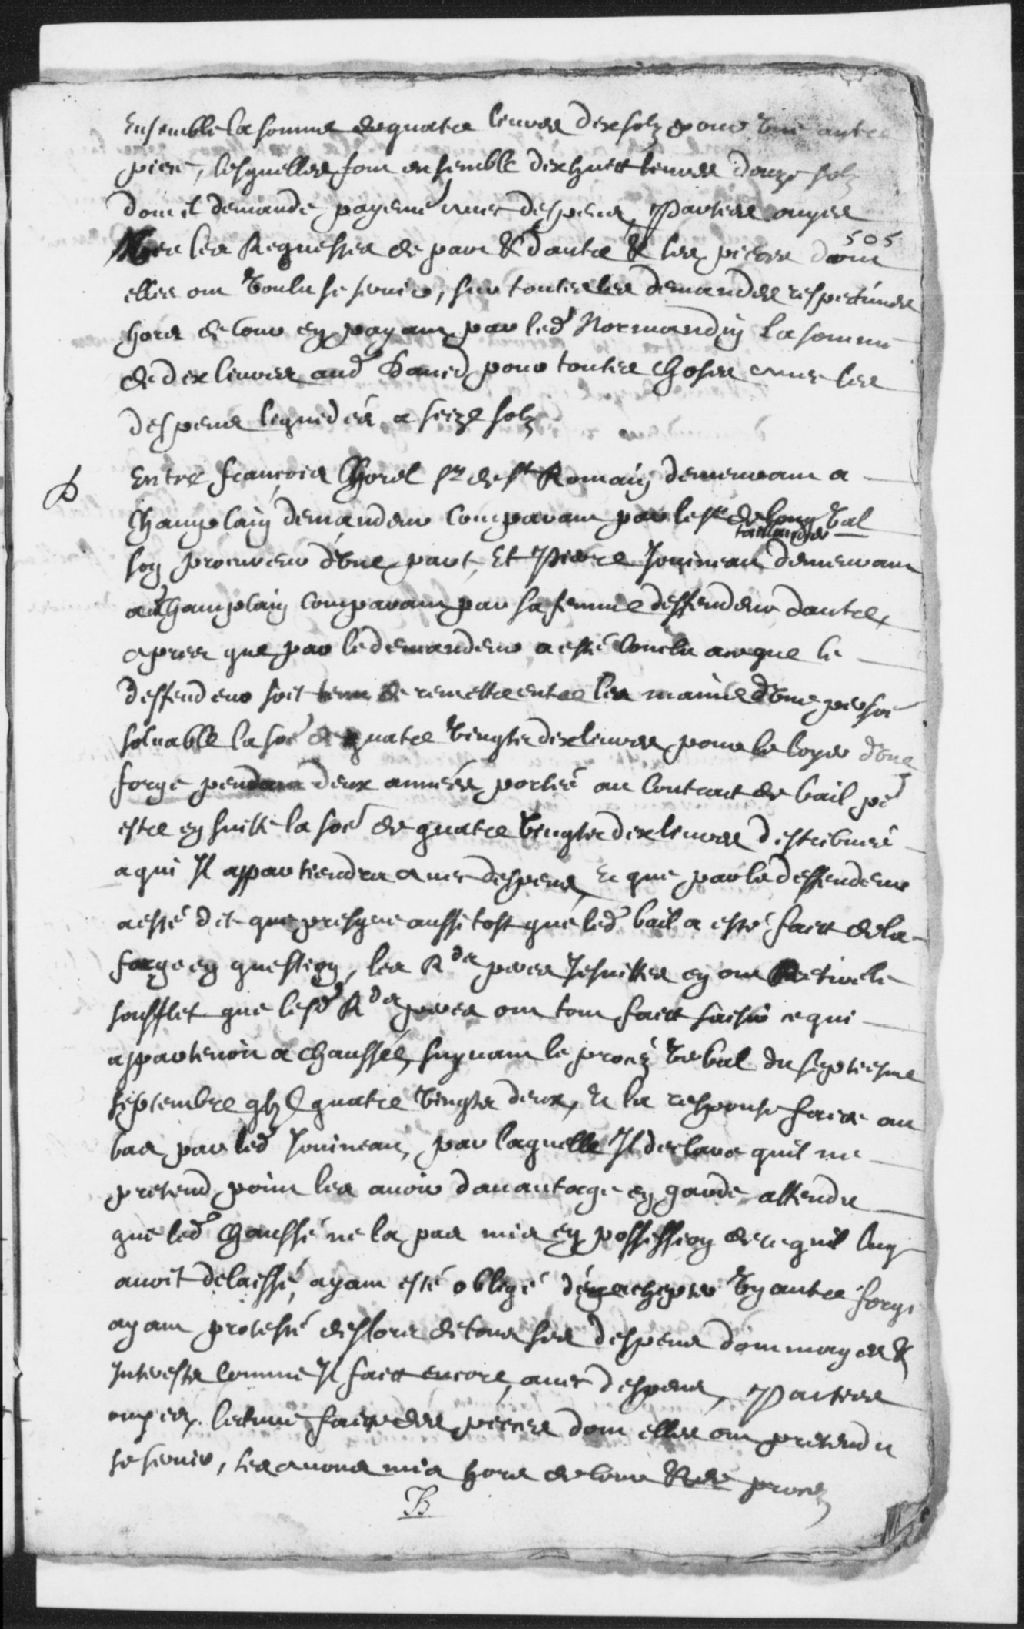 Ensemble la somme de quatre livres dix solz pour une autre
piece, lesquelles font ensemble dixhuict livres douze solz
dont il demande payement avec despens, Parties ouyes
505
Veu les Requestes de part & dautre & les pieces dont
elles ont voulu se servir, sur toutes les demandes respectives
hors de cour en payant par led Normandin la somme
de dix livres aud Baned pour toutes choses avec les
despens liquidés a seize solz
Entre françois Chorel Sr de St Romain demeurant a
Champlain demandeur comparant par le Sr de Long Val
son procureur d'une part, Et Pierre Jouineau demeurant
aud Champlain comparant par sa femme deffendeur dautre,
apres que par le demandeur a esté conclu a ce que le
deffendeur soit tenu de remettre entre les mains d'une perso
solvable la soe de quatre vingts dix livres pour le loyer d'une
forge pendant deux années portées au contract de bail pr
estre en suitte la soe de quatre vingts dix livres distribuée
a qui Il appartiendra avec despens, Et que par le deffendeur
a esté dit que presque aussi tost que led bail a esté faict de la
forge en question, les Rds peres Jesuittes en ont Retiré le
soufflet que lesd Rds peres ont tout faict saisir ce qui
appartenoit a chaussée, suyvant le procez verbal du septiesme
septembre gbjC quatre vingts deux, Et la response faite au
bas par led Jouineau, par laquelle Il declare quil ne
pretend point les avoir davantage en garde attendu
que led Chaussé ne la pas mis en possession de ce quil luy
avoit delaissé, ayant esté obligé d'en achepter un autre forge
ayant protesté deslors de tous ses despens dommages &
Interests comme Il faict encore, avec despens, Parties
ouyes, lecture faite des pieces dont elles ont pretendu
se servir, les avons mis hors de cour & de procez